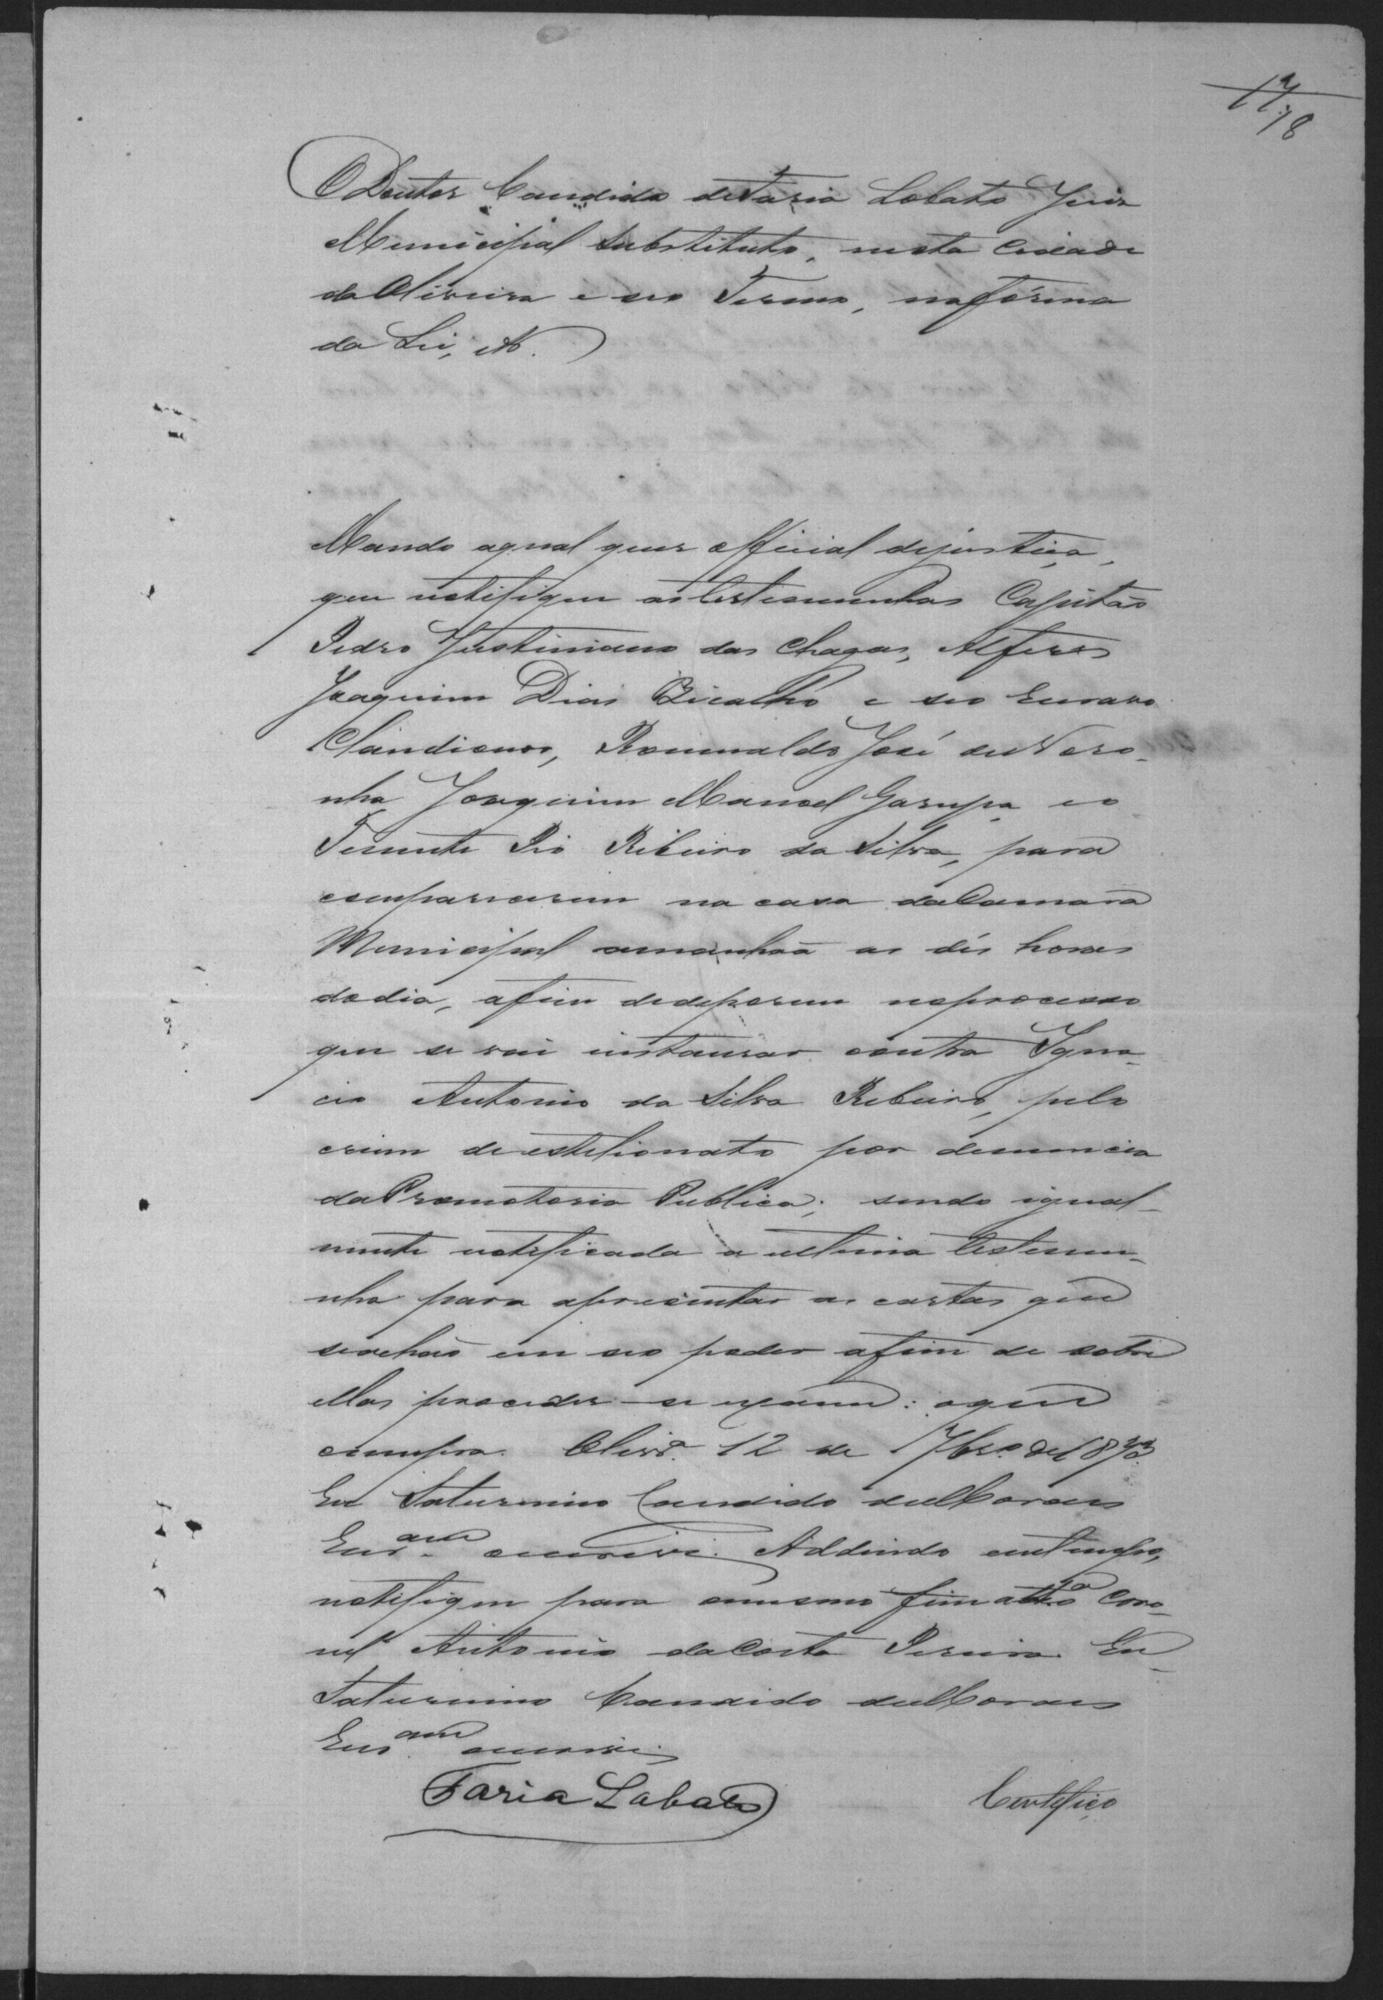 17
18
O Doutor Candido de Faria Lobato Juiz
Municipal Substituto, nesta Cidade
da Oliveira e seo Termo, na forma
da Lei, etc.
Mando a qual quer official de justiça,
que notifique as testemunhas Capitão
Pedro Justiniano das Chagas, Alferes
Joaquim Dias Bicalho e seo escravo
Romualdo José de Noro-
nha Joaquim Manoel Garupa e o
Tenente Pio Ribeiro da Silva, para
comparecerem na casa da Camara
Municipal amanhaã as dés horas
do dia, afim de deporem no processo
que se vai instaurar contra Igna-
cio Antonio da Silva Ribeiro, pelo
crime de estelionato por denuncia
da Promotoria Publica; sendo igual-
mente notificada a ultima testemu-
nha para apresentar as cartas que
se achão em seo poder afim de sobre
ellas proceder-se exame: o que
cumpra. Olivrª. 12 de 7brº. de 1873
Eu Saturnino Candido de Moraes
Escram escrevi. Addindo em tempo,
notifique para o mesmo fim a Coro-
nel Antonio da Costa Pereira. Eu
Saturnino Candido de Moraes
Escram escrevi
Faria Lobato
Certifico